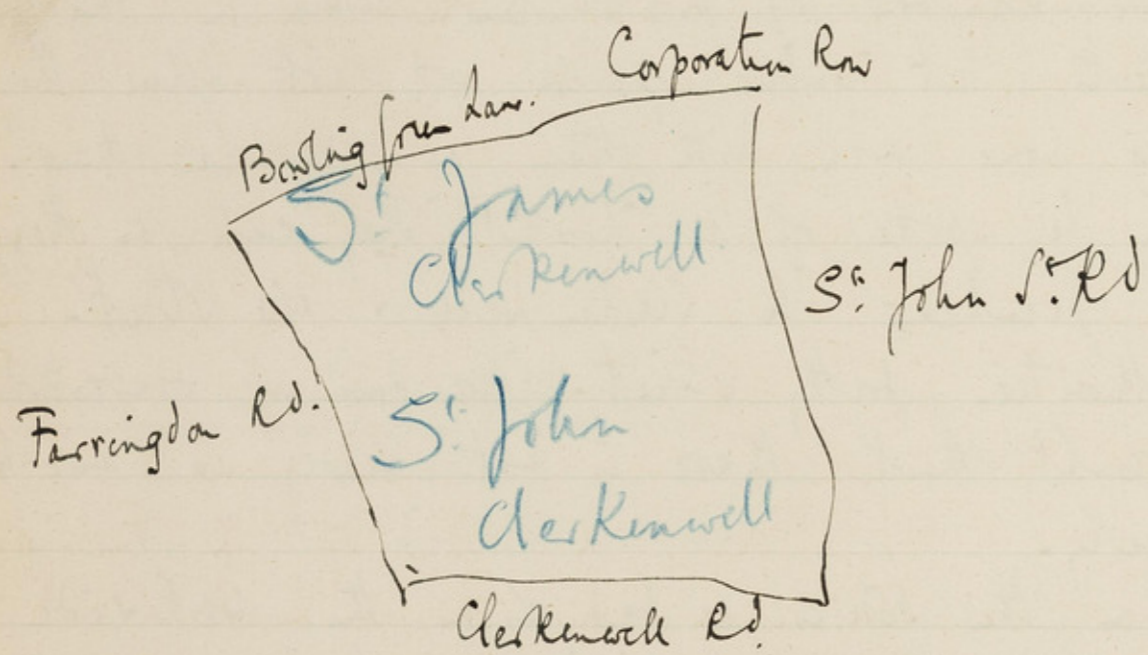 Corporation Row
Bowling Green Lane.
St. James
Clerkenwell
St. John St. Rd
Farringdon Rd.
St. John
Clerkenwell
Clerkenwell Rd.